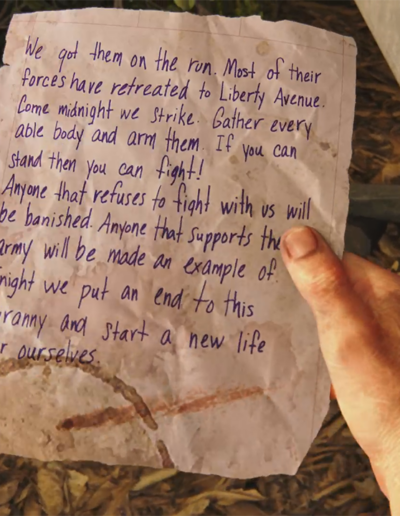 We got them on the run. Most of their
forces have retreated to Liberty Avenue.
Come midnight we strike. Gather every
able body and arm them. If you can
stand then you can fight!
Anyone that refuses to fight with us will
be banished. Anyone that supports the
army will be made an example of.
night we put an end to this
ranny and start a new life
r ourselves.